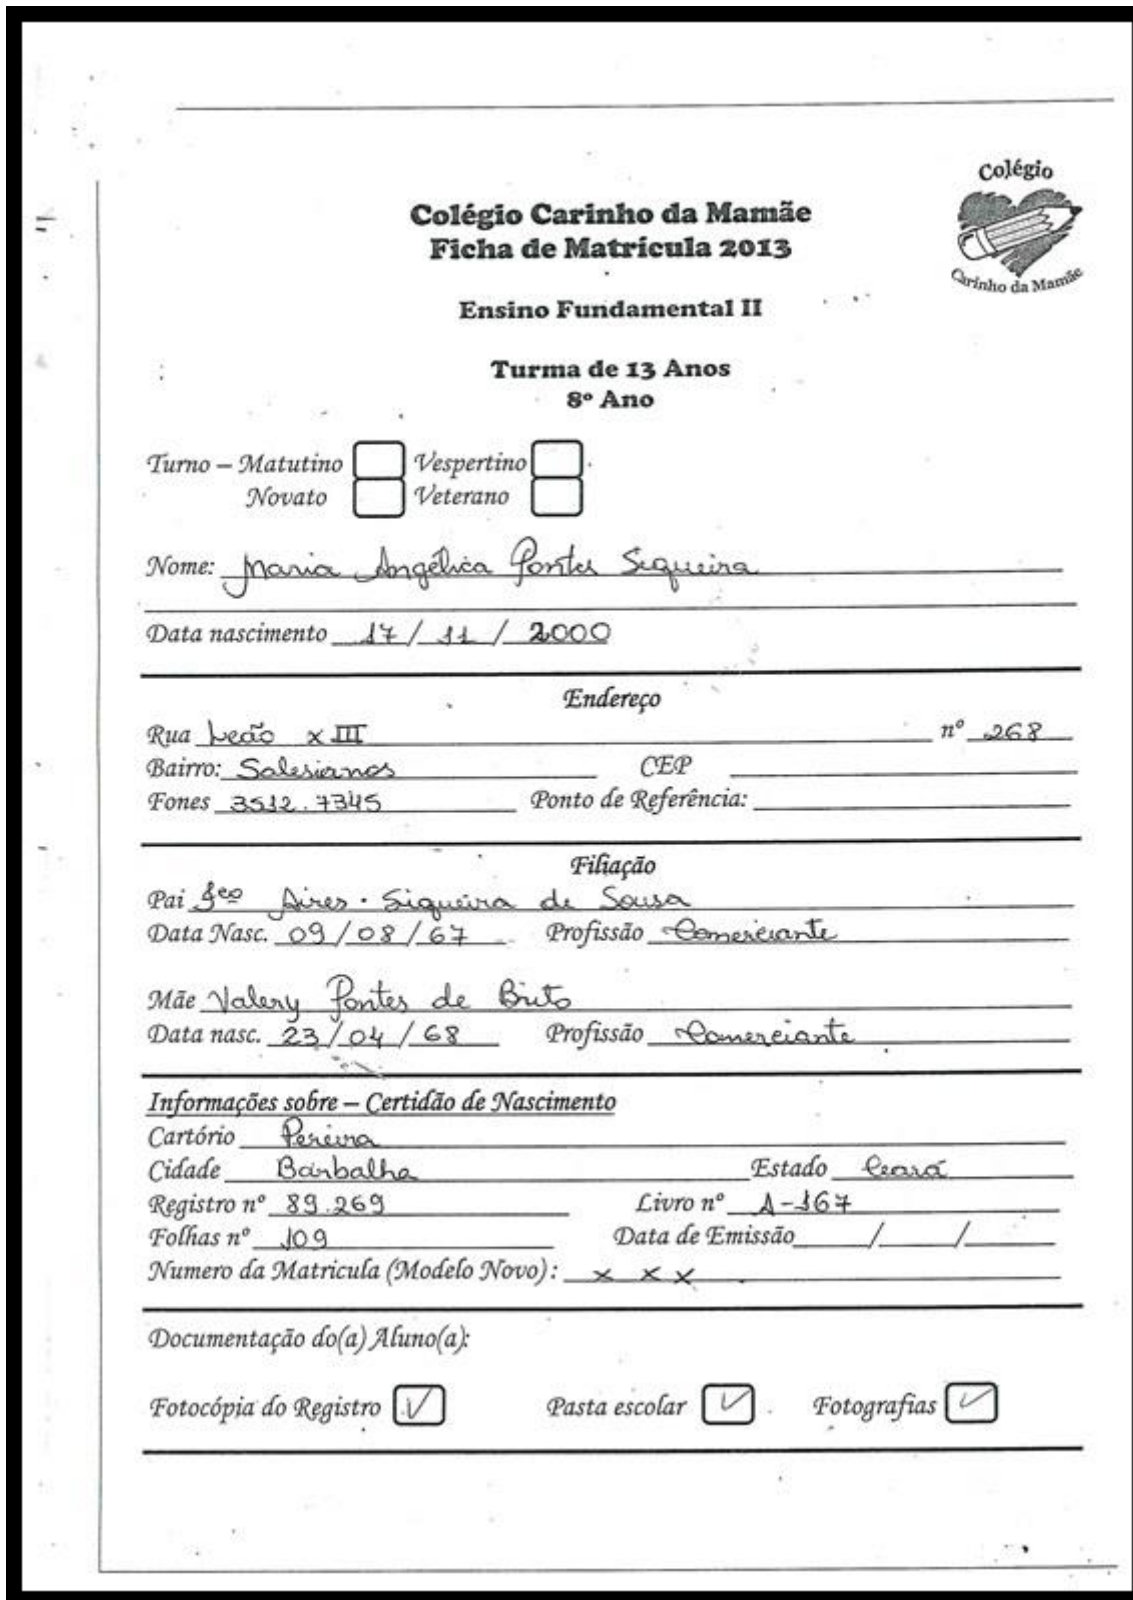 Colégio
Carinho da Mamãe
Colégio Carinho da Mamãe
Ficha de Matrícula 2013
Ensino Fundamental II
Turma de 13 Anos
8º Ano
Turno – Matutino Vespertino
Novato Veterano
Nome: Maria Angélica Pontes Siqueira
Data nascimento 17 / 11 / 2000
Endereço
Rua Leão XIII nº 268
Bairro: Salesianos CEP
Fones 3512.7345 Ponto de Referência:
Filiação
Pai Fco Aires Siqueira de Sousa
Data Nasc. 09/08/67 Profissão Comerciante
Mãe Valery Pontes de Brito
Data nasc. 23/04/68 Profissão Comerciante
Informações sobre – Certidão de Nascimento
Cartório Pereira
Cidade Barbalha Estado Ceará
Registro nº 89.269 Livro nº A-167
Folhas nº 109 Data de Emissão / /
Numero da Matricula (Modelo Novo): x x x
Documentação do(a) Aluno(a):
Fotocópia do Registro ✓ Pasta escolar ✓ Fotografias ✓